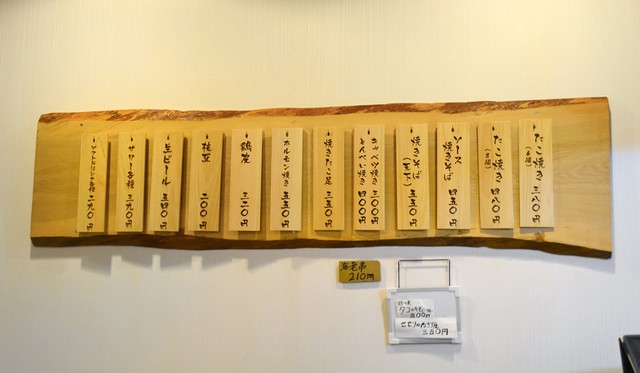 たこ焼き 三八〇円
(六個)
たこ焼き 四八〇円
(八個)
ソース
焼きそば 四五〇円
焼きそば 五五〇円
キャベツ焼き 三〇〇円
とんぺい焼き 四〇〇円
焼きたこ足 三五〇円
ホルモン焼き 五五〇円
鶏皮 三二〇円
枝豆 二〇〇円
生ビール 五四〇円
サワー各種 三九〇円
ソフトドリンク各種 二九〇円
海老串
210円
五〇〇円
三五〇円